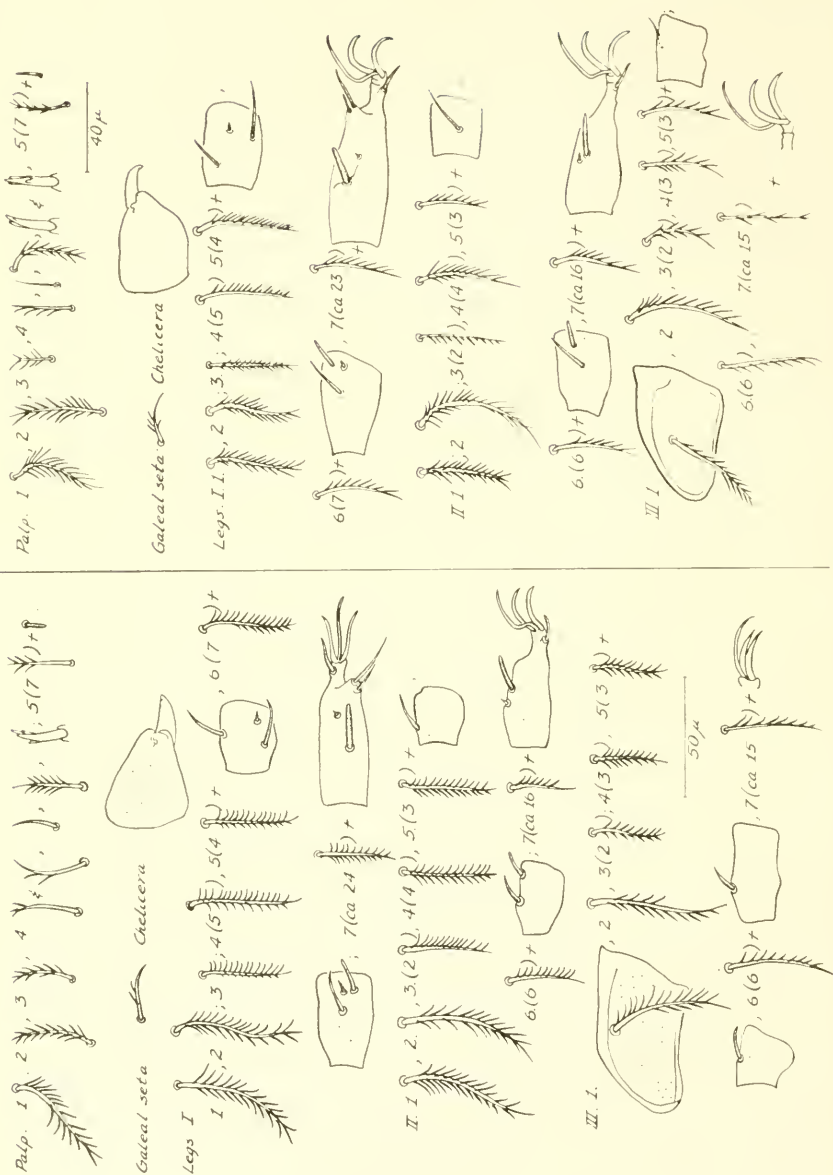 Palp. 1, 2, 3, 4 & , , ; 5(7)+
Galeal seta Chelicera
Legs I
1, 2; 3; 4(5), 5(4)+ , 6(7)+
; 7(ca 24)+
II. 1, 2, 3.(2), 4(4), 5.(3)+
6.(6)+ ; 7(ca 16)+
III. 1. , 2, 3(2); 4(3), 5(3)+
50 µ
, 6(6), 7(ca 15)+
Palp. 1 2, 3, 4, , & , 5(7)+
40 µ
Galeal seta Chelicera
Legs. I 1. , 2; 3; 4(5) 5(4)+
6(7)+ , 7(ca 23)+
II 1; 2; 3(2), 4(4), 5(3)+
6.(6)+ , 7(ca 16)+
III 1 , 2, 3(2), 4(3), 5(3)+
6.(6), 7.(ca 15)+